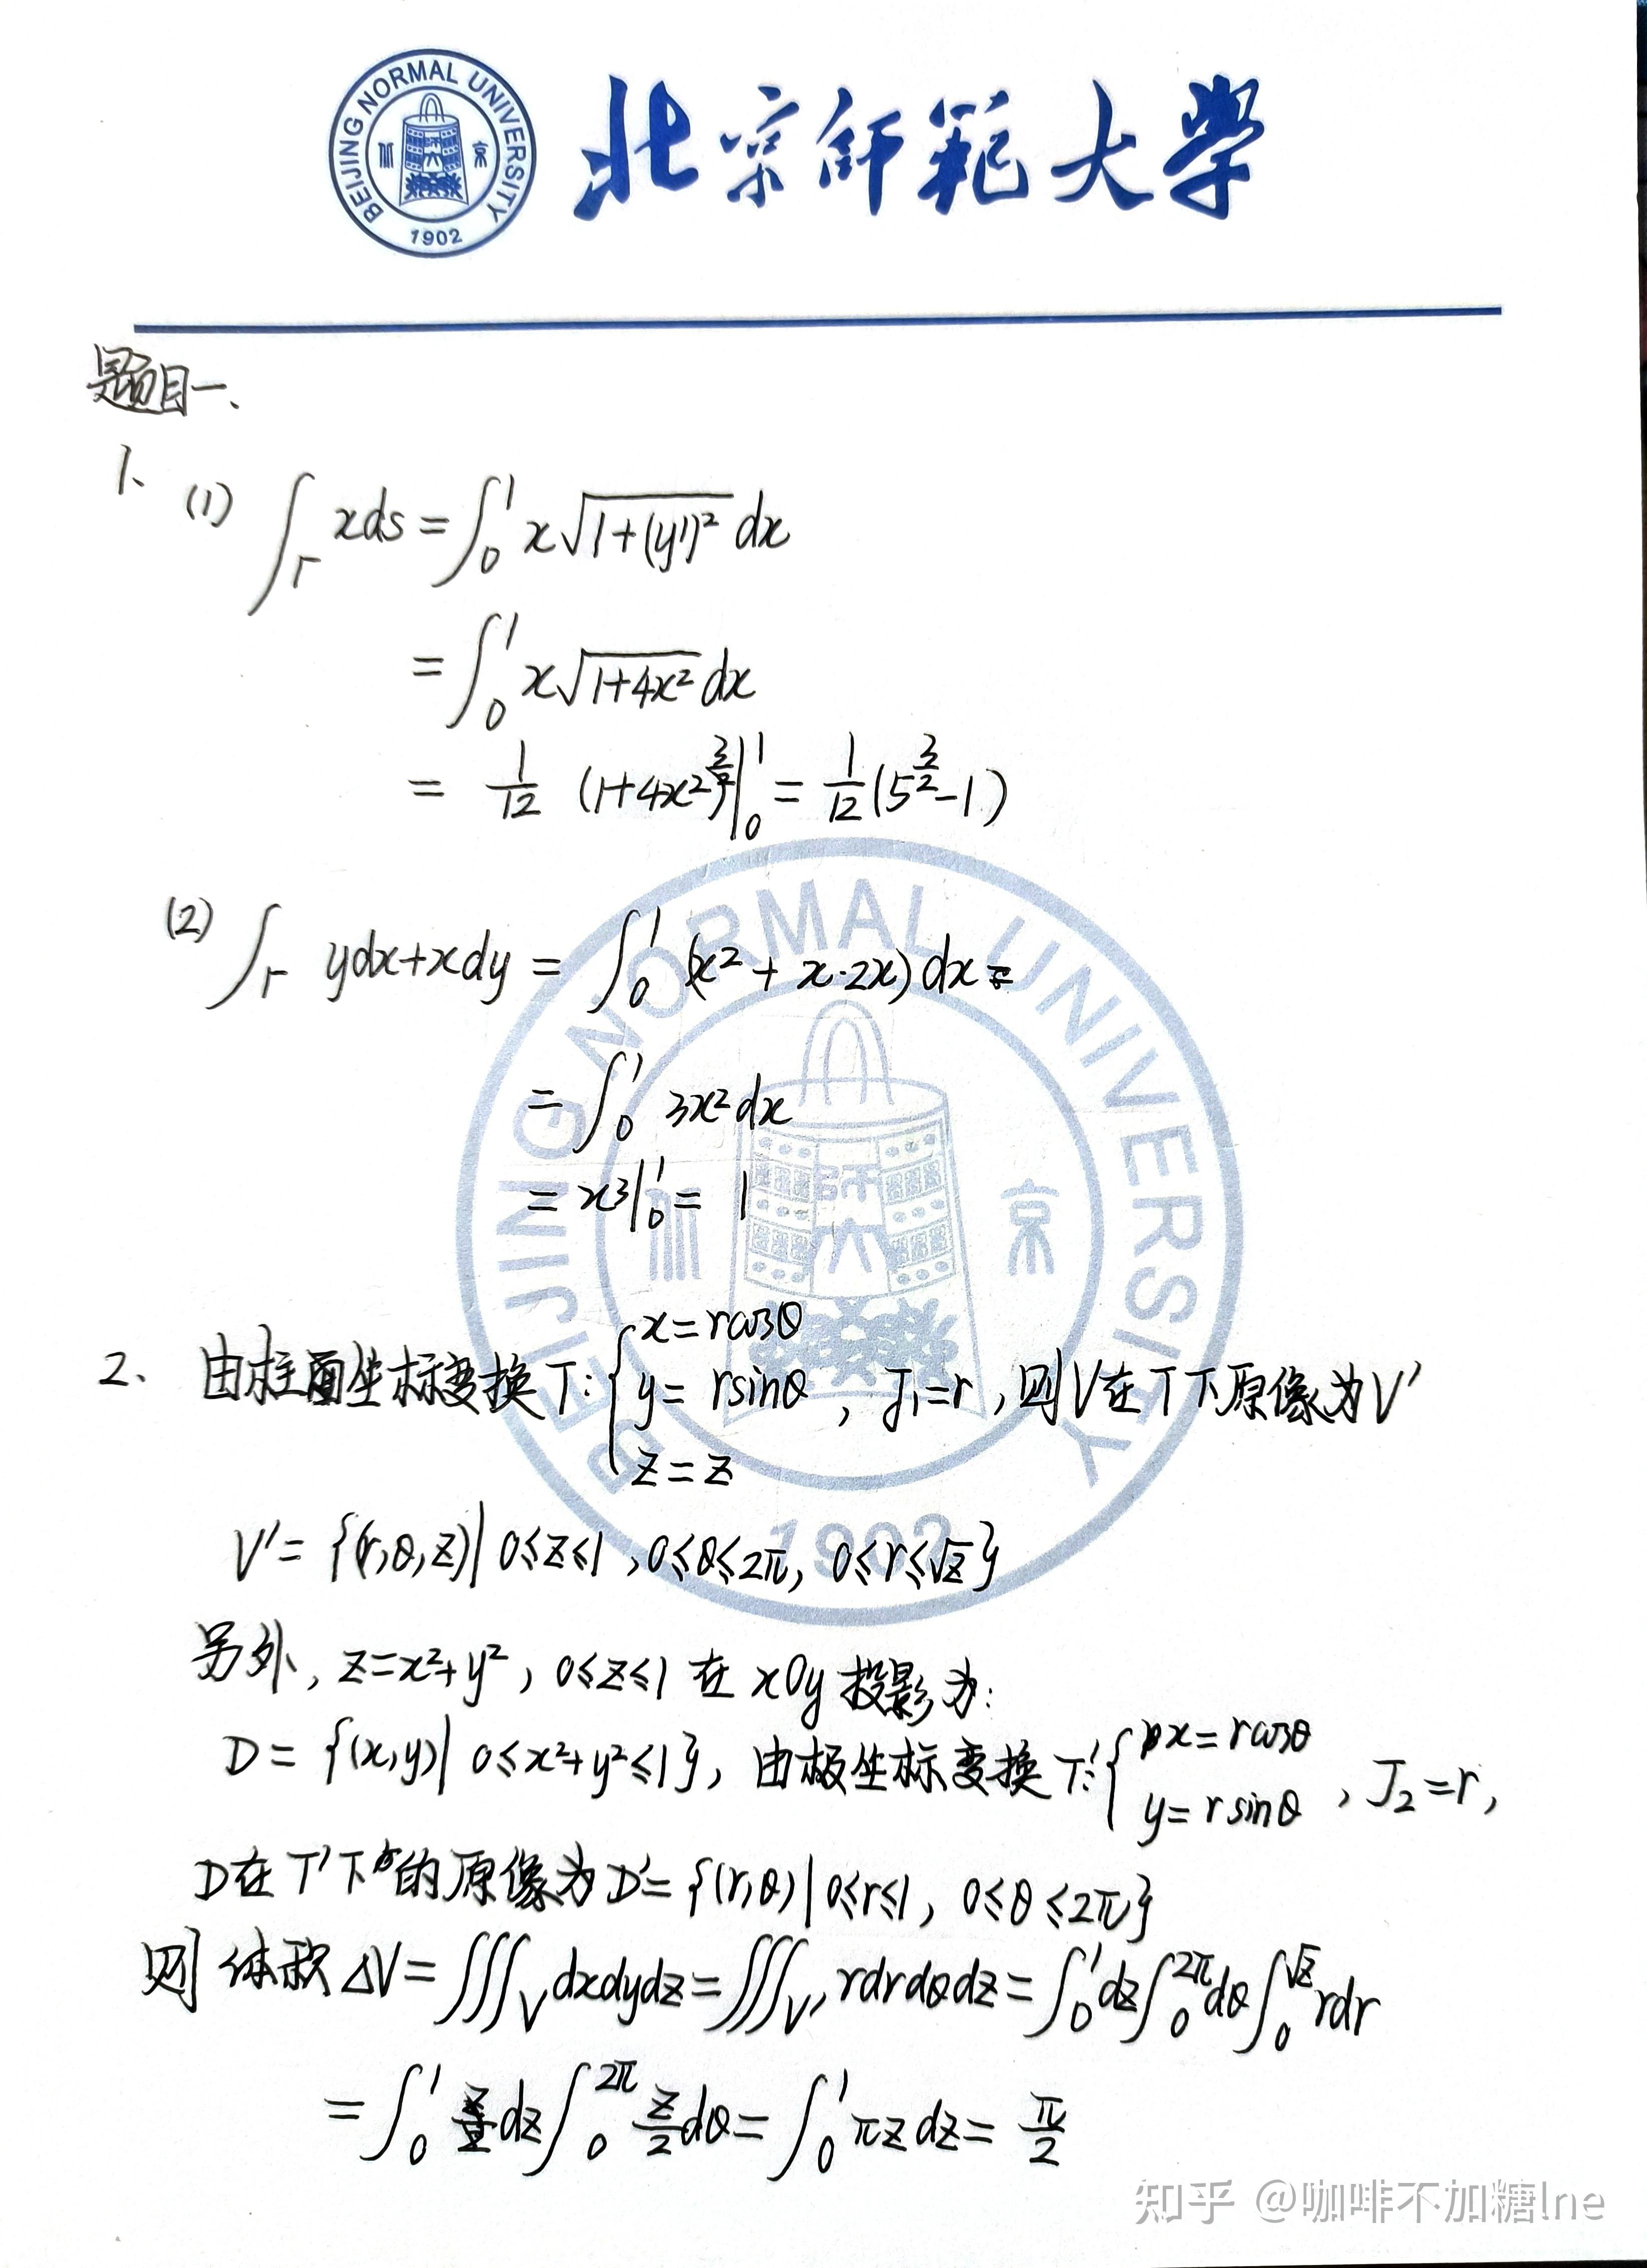 BEIJING NORMAL UNIVERSITY
1902
北京师范大学
题目一、
1、(1) ∫_Γ xds = ∫_0^1 x√(1+(y')²) dx
= ∫_0^1 x√(1+4x²) dx
= 1/12 (1+4x²)^(3/2) |_0^1 = 1/12 (5^(3/2) - 1)
(2) ∫_Γ ydx+xdy = ∫_0^1 (x² + x·2x) dx =
= ∫_0^1 3x² dx
= x³|_0^1 = 1
2、由柱面坐标变换 T: { x=rcosθ
y=rsinθ , J₁=r, 则V在T下原像为V'
z=z
V' = {(r,θ,z) | 0≤z≤1, 0≤θ≤2π, 0≤r≤√z}
另外, z=x²+y², 0≤z≤1 在 xOy 投影为:
D = {(x,y) | 0≤x²+y²≤1}, 由极坐标变换 T': { x=rcosθ
y=rsinθ , J₂=r,
D在T'下的原像为D'={(r,θ) | 0≤r≤1, 0≤θ≤2π}
则体积 ΔV = ∭_V dxdydz = ∭_V' rdrdθdz = ∫_0^1 dz ∫_0^2π dθ ∫_0^√z rdr
= ∫_0^1 dz ∫_0^2π z/2 dθ = ∫_0^1 πz dz = π/2
BEIJING NORMAL UNIVERSITY
1902
知乎 @咖啡不加糖lne